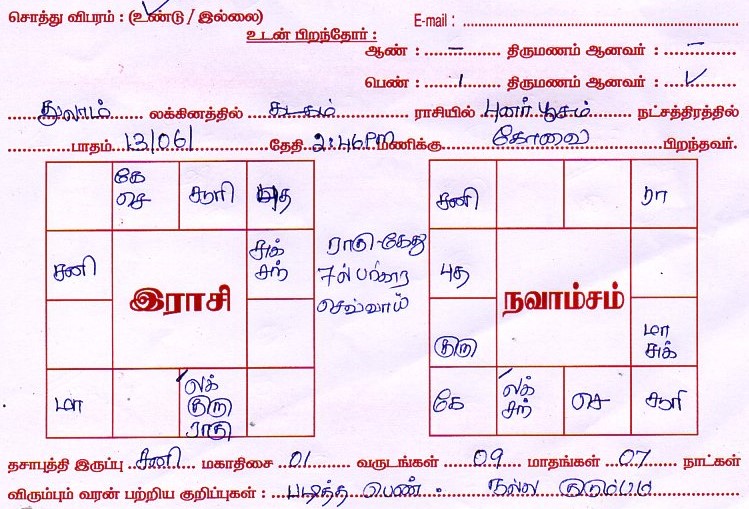 சொத்து விபரம் : (உண்டு / இல்லை)
E-mail :
உடன் பிறந்தோர் :
ஆண் : – திருமணம் ஆனவர் : –
பெண் : 1 திருமணம் ஆனவர் : ✓
துலாம் லக்கினத்தில் கடகம் ராசியில் புனர்பூசம் நட்சத்திரத்தில்
பாதம் 13/06/ தேதி 2:46PM மணிக்கு கோவை பிறந்தவர்.
கே
செ
சூரி
புத
சனி
சுக்
சந்
இராசி
மா
லக்
குரு
ராகு
ராகு-கேது
7ல்
செவ்வாய்
சனி
ரா
புத
நவாம்சம்
குரு
மா
சுக்
கே
லக்
சந்
செ
சூரி
தசாபுத்தி இருப்பு சனி மகாதிசை 01 வருடங்கள் 09 மாதங்கள் 07 நாட்கள்
விரும்பும் வரன் பற்றிய குறிப்புகள் : படித்த பெண். நல்ல குடும்பம்